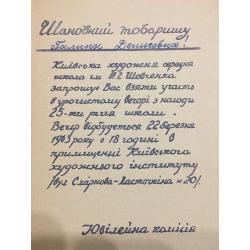 Шановний товаришу
Київська художня середня
школа ім Т.Г. Шевченка
запрошує Вас взяти участь
в урочистому вечорі з нагоди
25-ти річчя школи.
Вечір відбудеться 22 березня
1963 року о 18 годині в
приміщенні Київського
художнього інституту
/вул Смірнова-Ласточкіна № 20/.
Ювілейна комісія